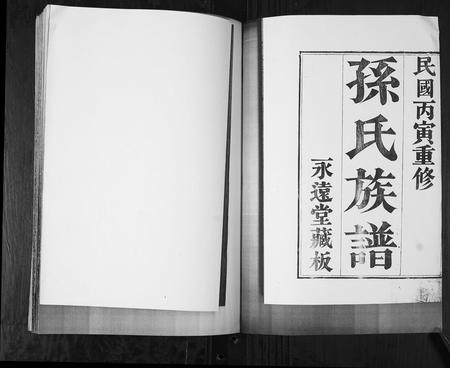 民國丙寅重修
孫氏族譜
永遠堂藏板